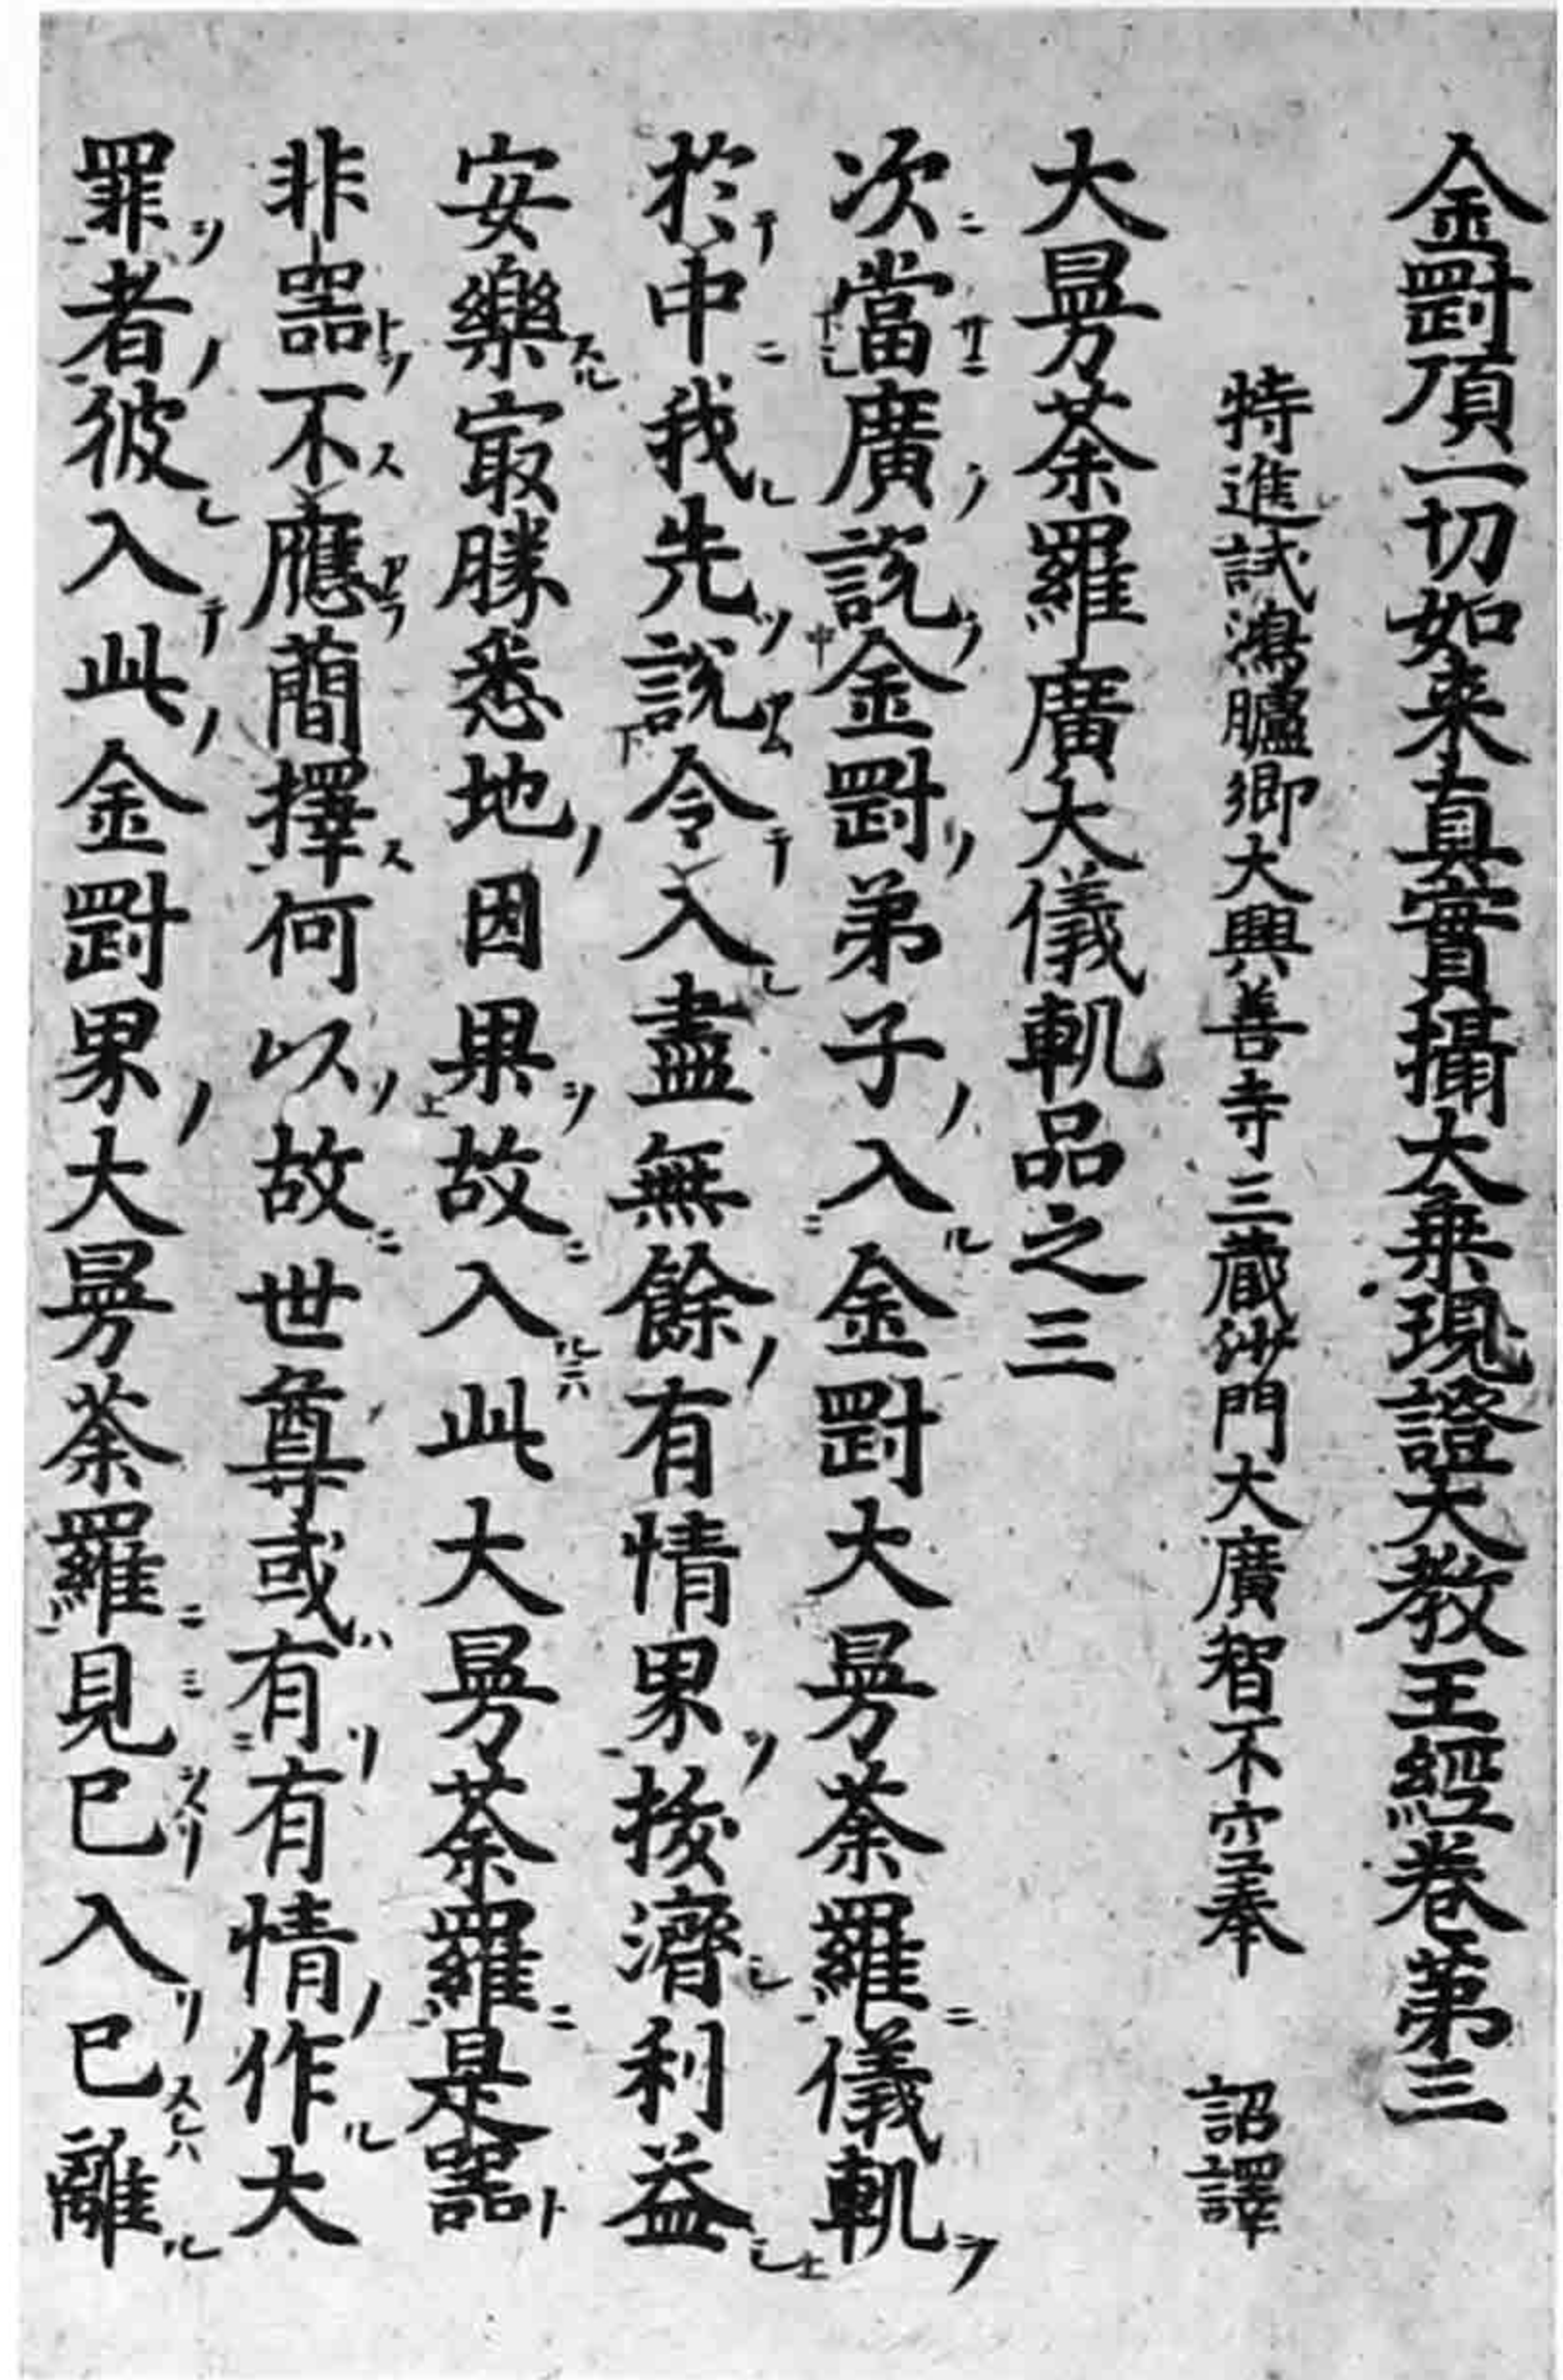 金罸頂一切如来真實攝大乗現證大教王經卷第三
特進試鴻臚卿大興善寺三蔵沙門大廣智不空奉 詔譯
大曼荼羅廣大儀軌品之三
次當廣説金罸弟子入金罸大曼荼羅儀軌
於中我先説令入盡無餘有情界拔濟利益
安樂冣勝悉地因果故入此大曼荼羅是器
非器不應蕳擇何以故世尊或有有情作大
罪者彼入此金罸界大曼荼羅見已入已離